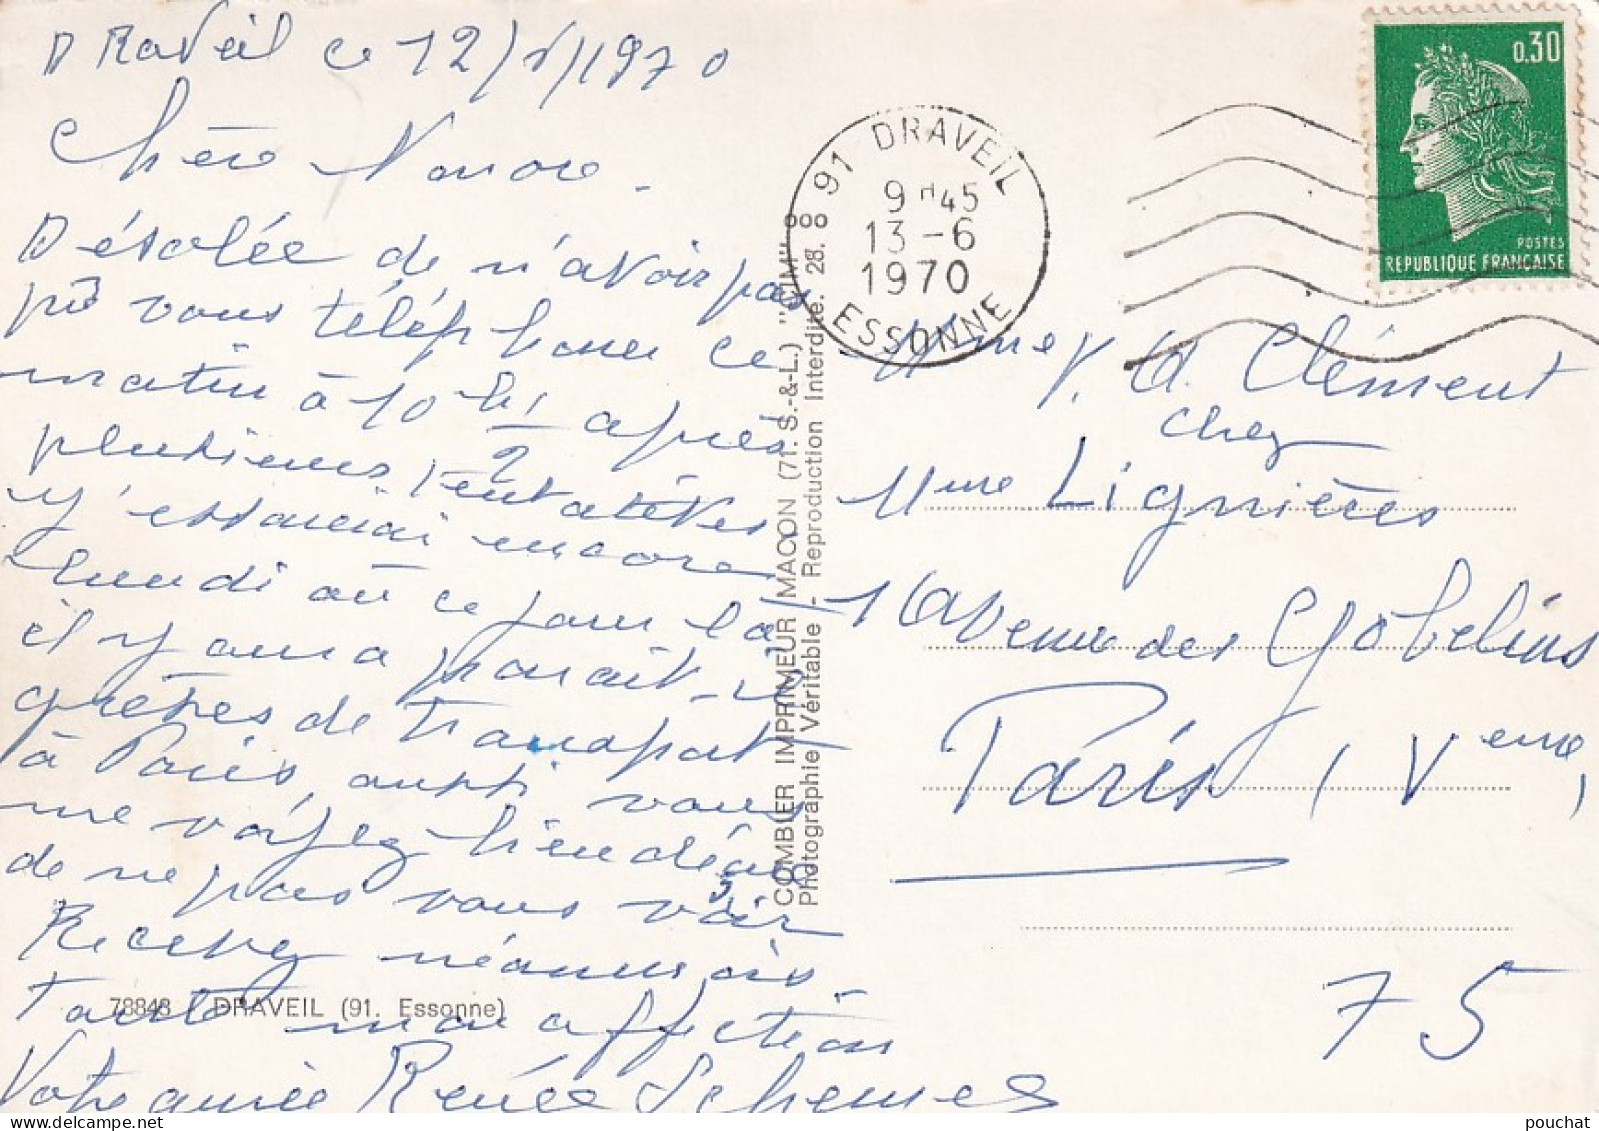 Draveil ce 12/6/1970
Chère Nanore.
Désolée de n'avoir pas
pû vous téléphoner ce
matin à 10 h 1/2 après
plusieurs tentatives
j'essaierai encore
lundi où ce jour là
il y aura paraît-il
grèves de transport
à Paris, aussi vous
me voyez bien déçue
de ne pas vous voir
Recevez néanmoins
toute mon affection
Votre amie Renée
78848 DRAVEIL (91. Essonne)
COMBIER IMPRIMEUR MACON (71. S.-&-L.) "CIM"
Photographie Véritable - Reproduction Interdite. 28.
91 DRAVEIL
9H45
13-6
1970
ESSONNE
0,30
POSTES
REPUBLIQUE FRANÇAISE
Mme V. A. Clément
chez
Mme Lignières
1 Avenue des Gobelins
Paris (Veme)
75
pouchat